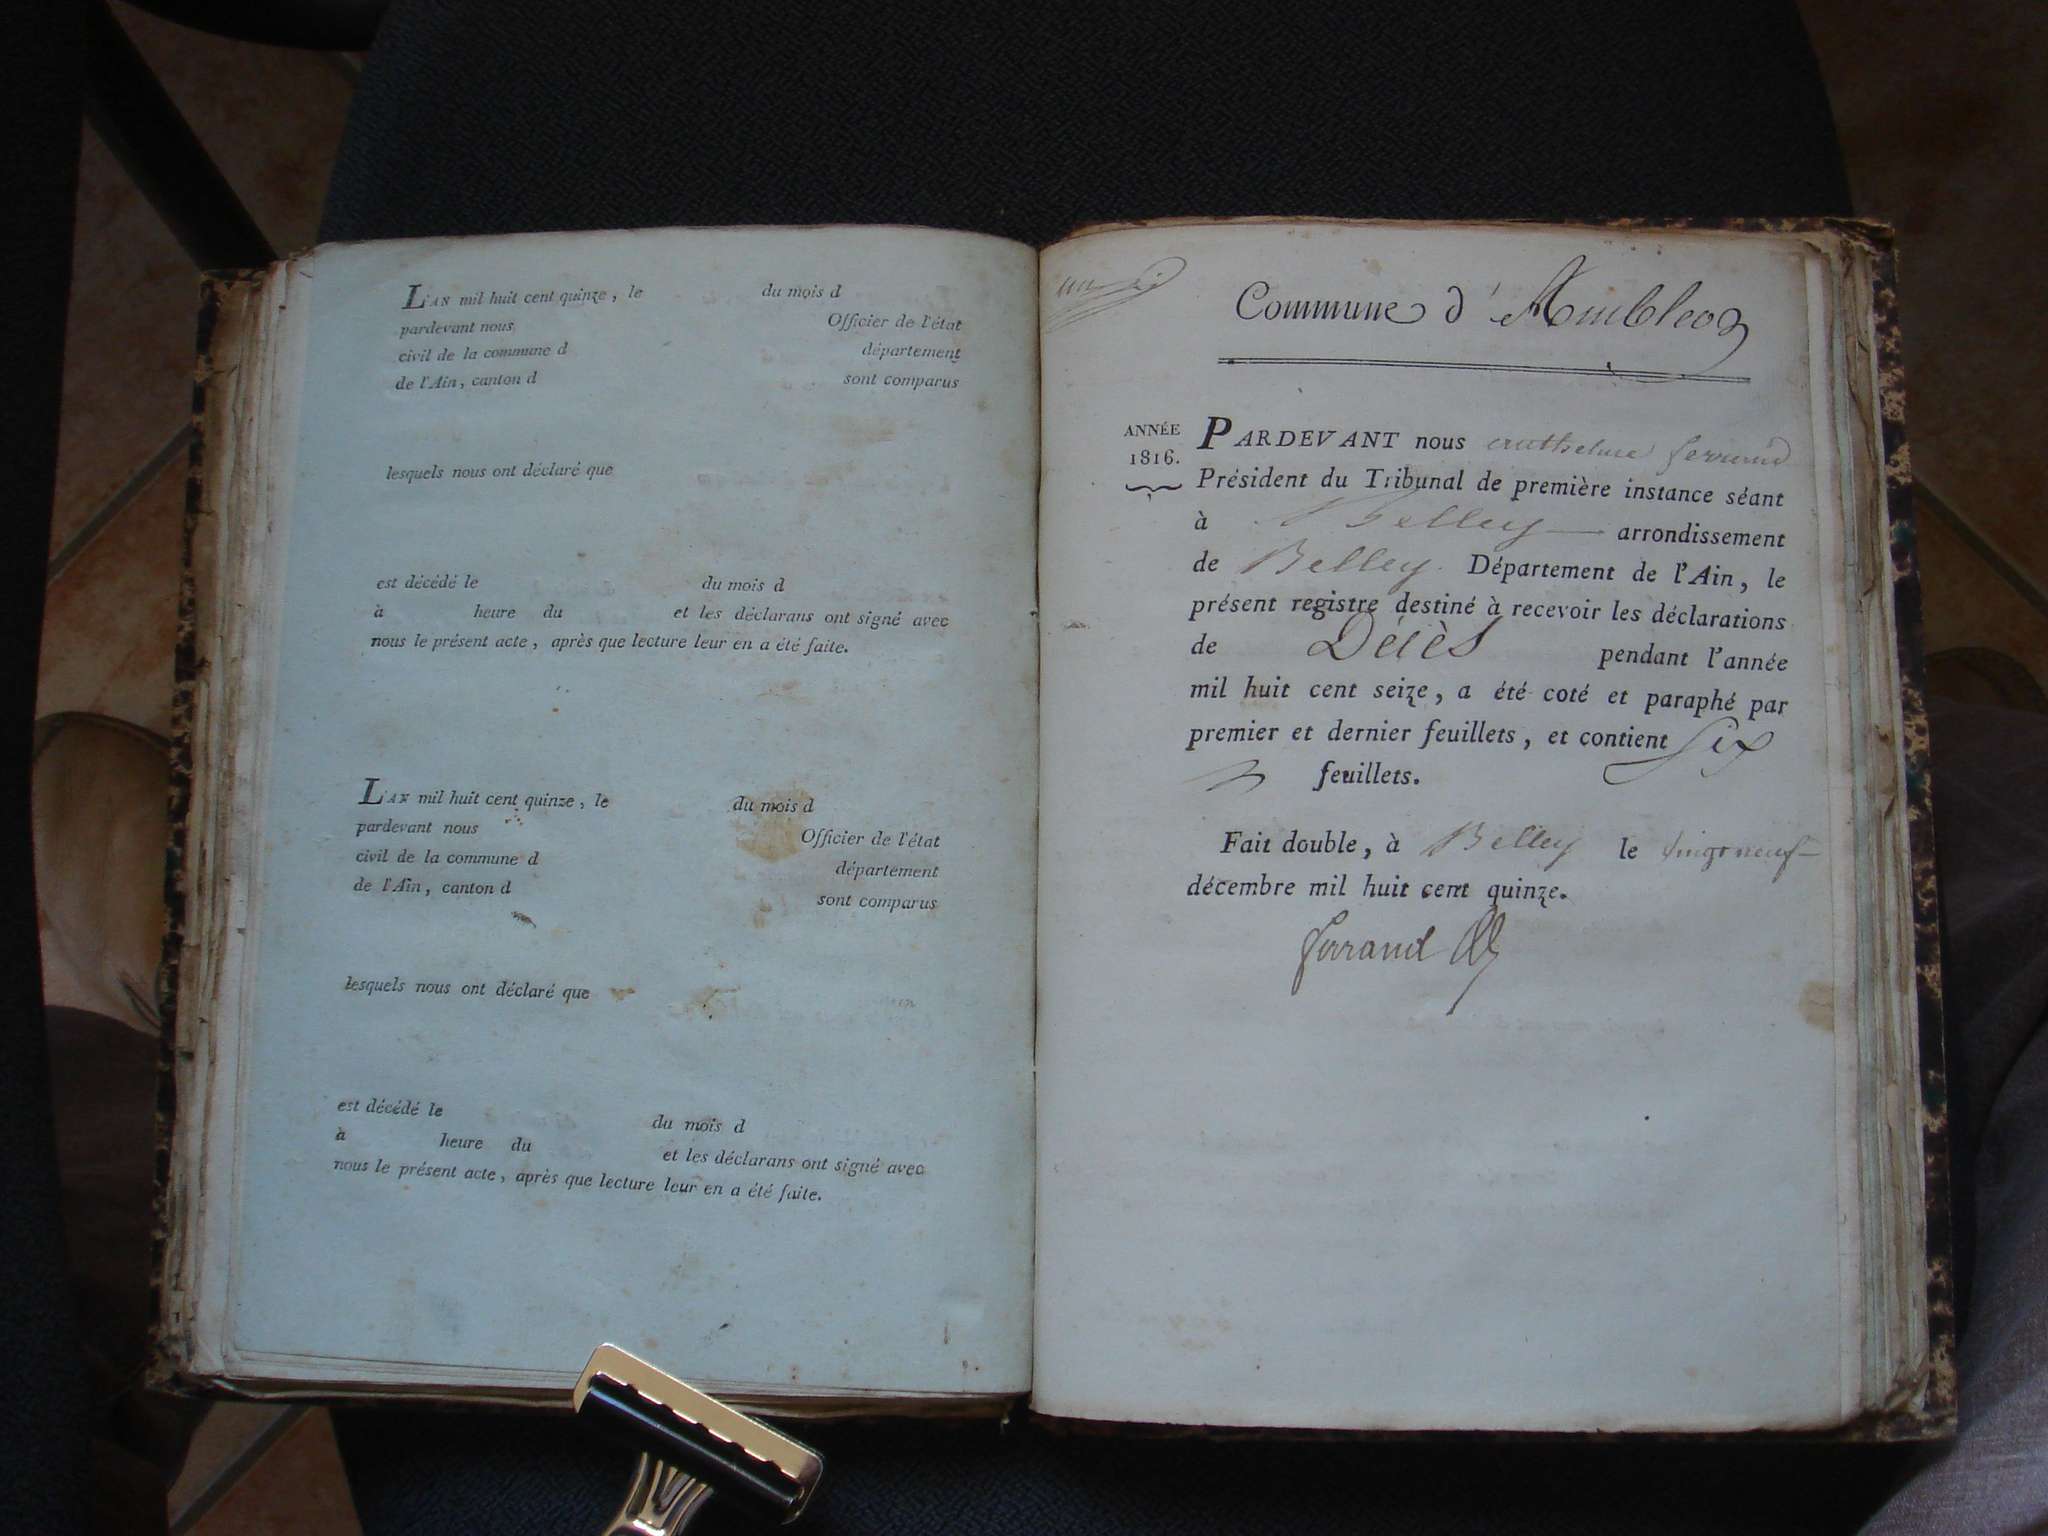 L'AN mil huit cent quinze, le du mois d
pardevant nous Officier de l'état
civil de la commune d département
de l'Ain, canton d sont comparus
lesquels nous ont déclaré que
est décédé le du mois d
à heure du et les déclarans ont signé avec
nous le présent acte, après que lecture leur en a été faite.
L'AN mil huit cent quinze, le du mois d
pardevant nous Officier de l'état
civil de la commune d département
de l'Ain, canton d sont comparus
lesquels nous ont déclaré que
est décédé le du mois d
à heure du et les déclarans ont signé avec
nous le présent acte, après que lecture leur en a été faite.
Commune d'Ambleon
ANNÉE
1816.
PARDEVANT nous anthelme ferrand
Président du Tribunal de première instance séant
à Belley arrondissement
de Belley Département de l'Ain, le
présent registre destiné à recevoir les déclarations
de Décès pendant l'année
mil huit cent seize, a été coté et paraphé par
premier et dernier feuillets, et contient six
feuillets.
Fait double, à Belley le vingt neuf
décembre mil huit cent quinze.
ferrand